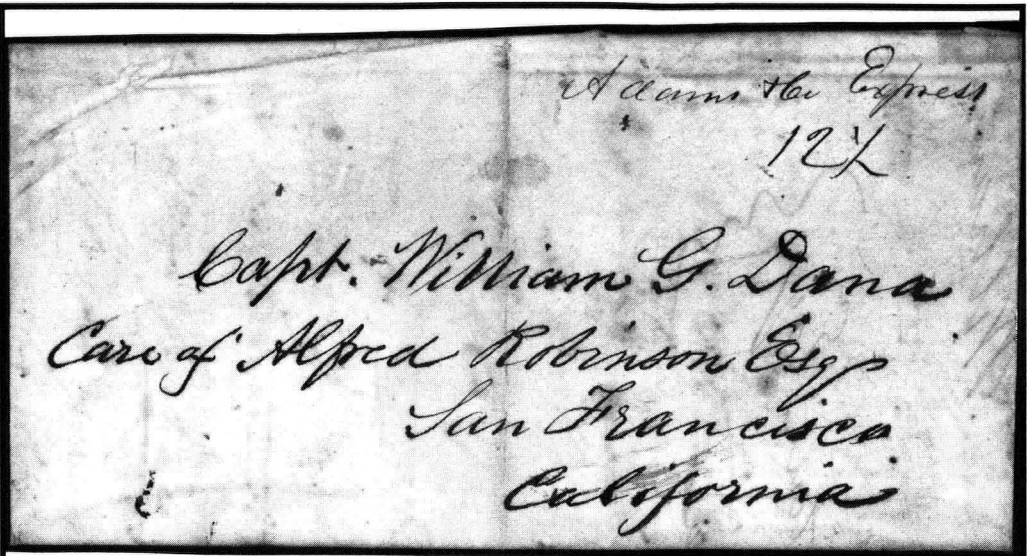 Adams & Co Express
12½
Capt. William G. Dana
Care of Alfred Robinson Esq
San Francisco
California